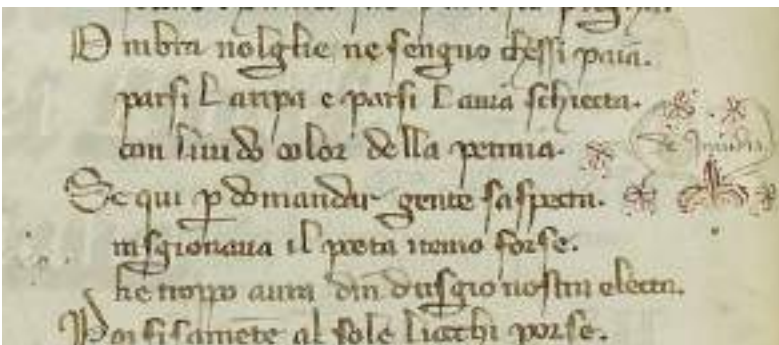 Ombra nolglie ne sengno chessi paia.
parsi laripa e parsi lauia schiecta.
con liuido color della petraia.
Se qui p domandar gente saspecta.
il poeta
forse.
he troppo aura dindusgio nostra electa.
Poi fisamete al sole liocchi porse.
de Inuidia